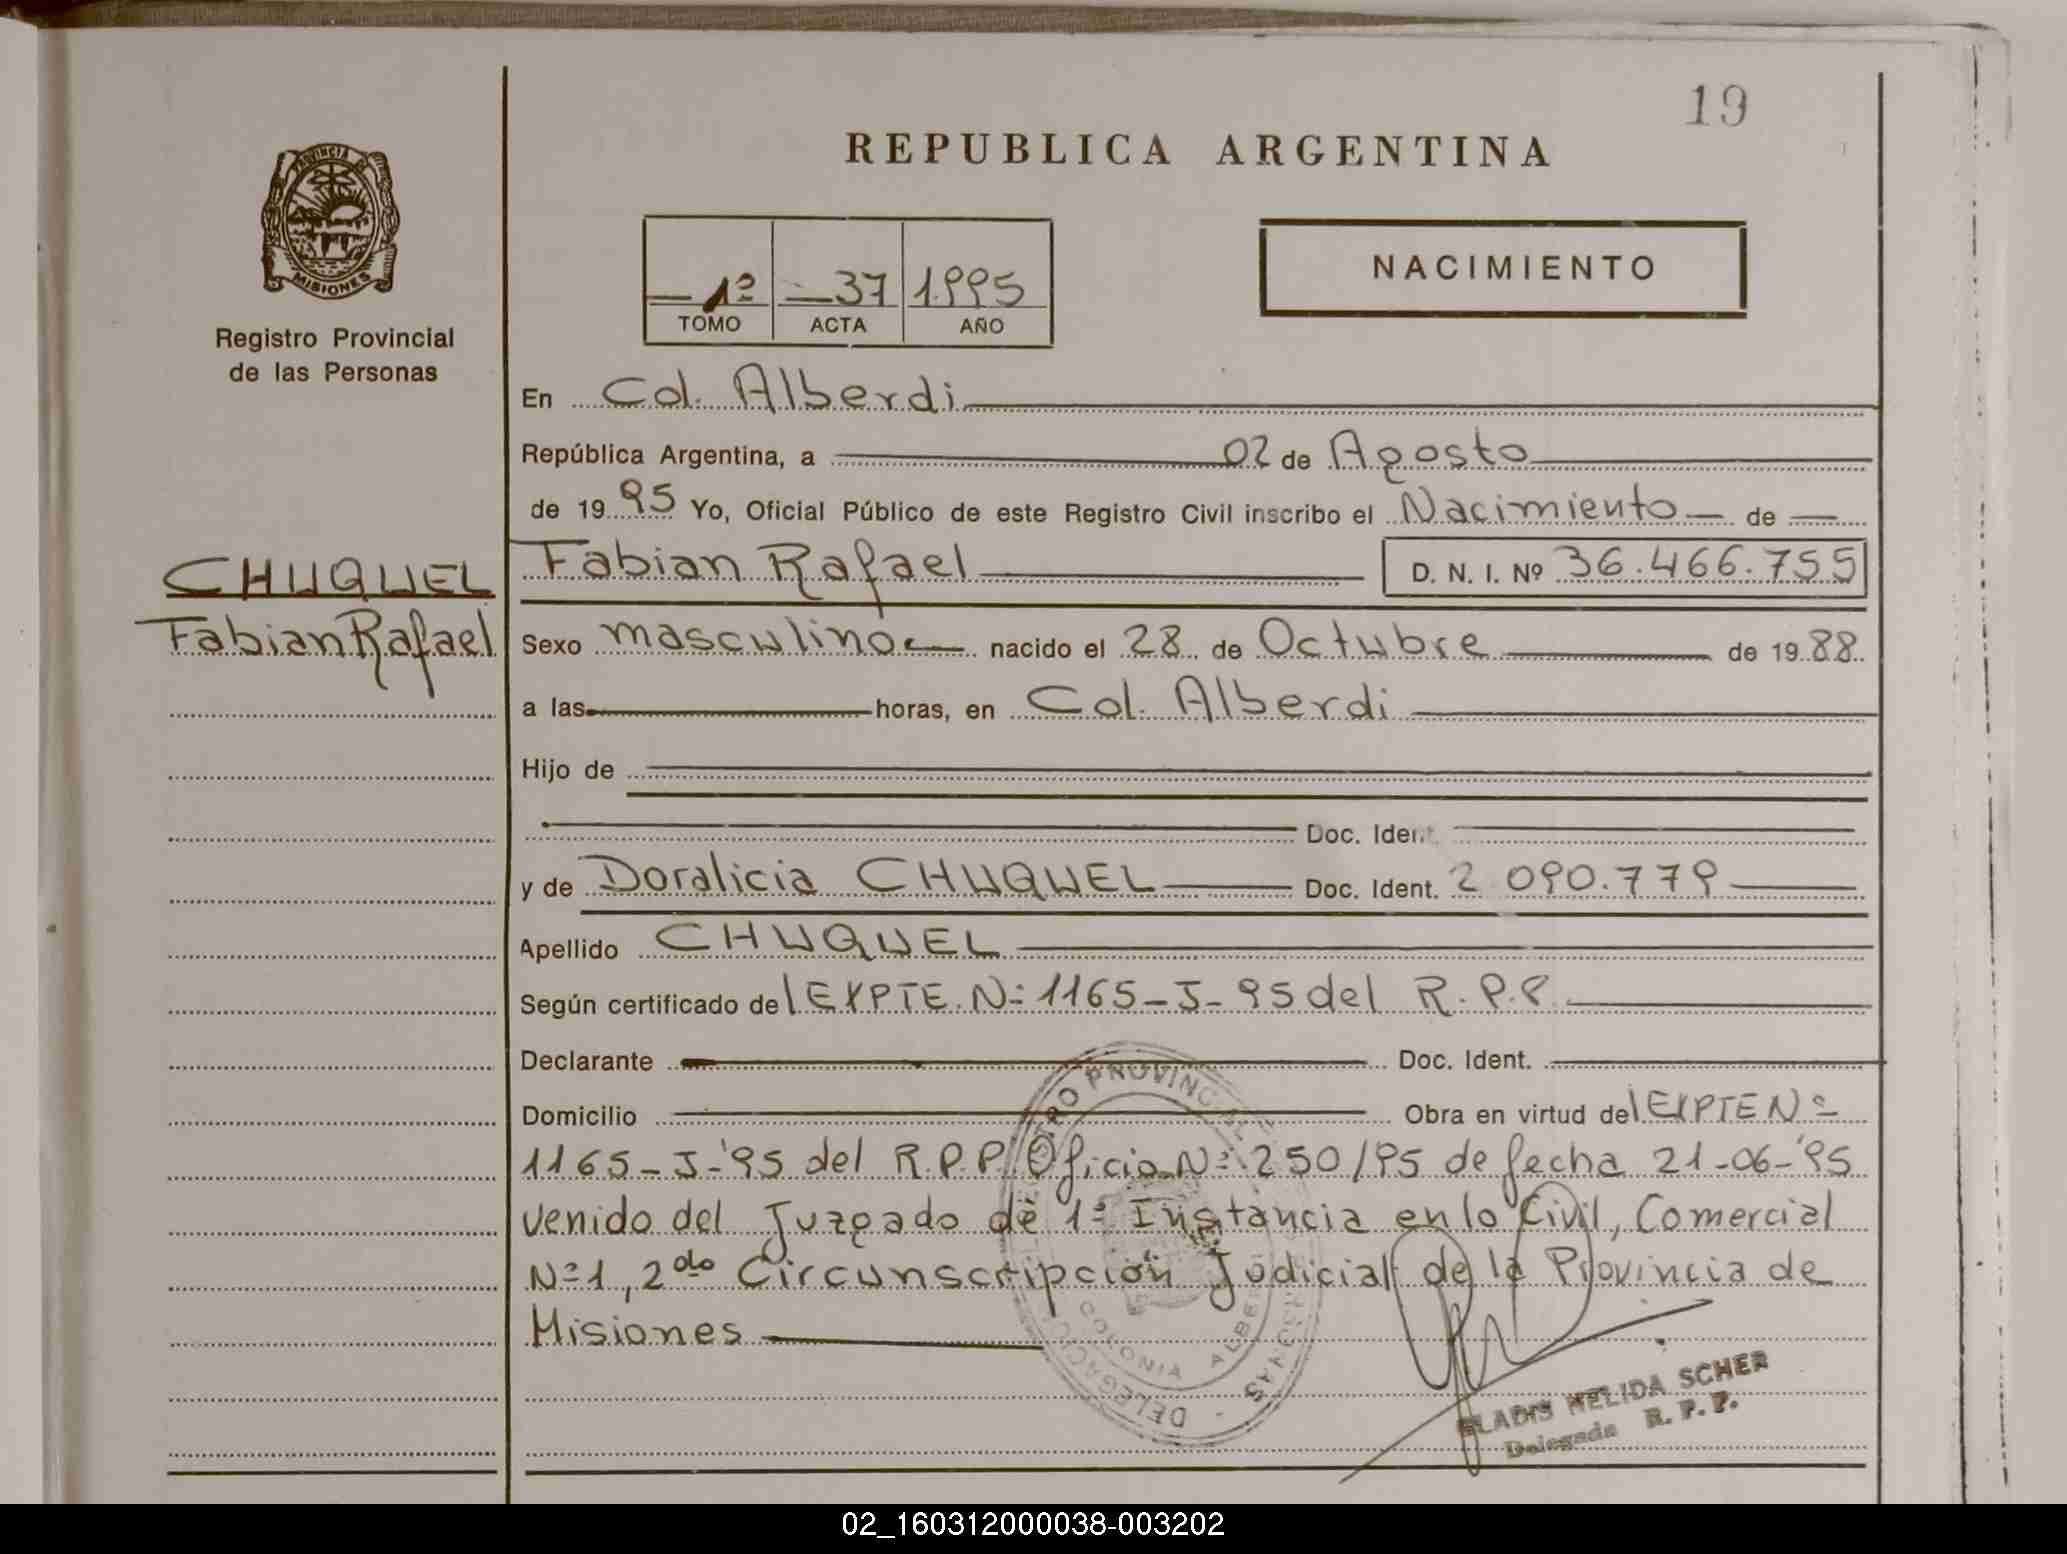 19
REPUBLICA ARGENTINA
PROVINCIA DE
MISIONES
Registro Provincial
de las Personas
1º 37 1995
TOMO ACTA AÑO
NACIMIENTO
En Col. Alberdi
República Argentina, a 02 de Agosto
de 1995 Yo, Oficial Público de este Registro Civil inscribo el Nacimiento de
CHUQUEL
Fabian Rafael
Fabian Rafael D. N. I. Nº 36.466.755
Sexo masculino nacido el 28 de Octubre de 1988
a las horas, en Col. Alberdi
Hijo de
Doc. Ident.
y de Doralicia CHUQUEL Doc. Ident. 2 090.779
Apellido CHUQUEL
Según certificado del EXPTE. Nº 1165-J-95 del R.P.P.
Declarante Doc. Ident.
Domicilio Obra en virtud del EXPTE Nº
1165-J-'95 del R.P.P. Oficio Nº 250/95 de fecha 21-06-'95
venido del Juzgado de 1ª Instancia en lo Civil, Comercial
Nº 1, 2da Circunscripción Judicial de la Provincia de
Misiones
COLONIA ALBERDI
GLADIS NELIDA SCHER
Delegada R. P. P.
02_160312000038-003202